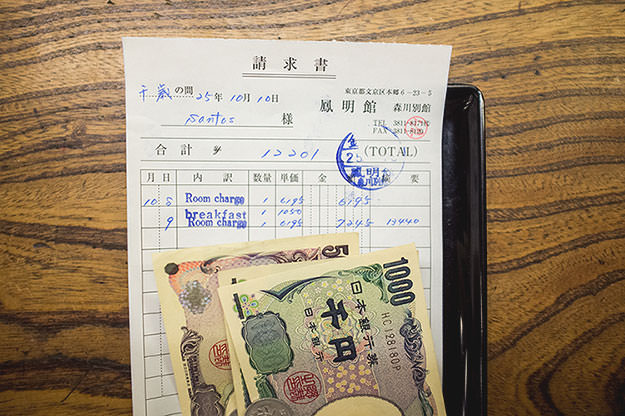 請求書
千歳の間 25年10月10日
東京都文京区本郷6-23-5
鳳明館 森川別館
Santos 様
TEL 3811-8171
FAX 3811-8120
合計 ¥ 12201 (TOTAL)
月 日 内訳 数量 単価 金 要
10 8 Room charge 1 6195 6195
breakfast 1 1050
9 Room charge 1 6195 7245 13440
5
1000
日本銀行券
千円
日本銀行
HC128180P